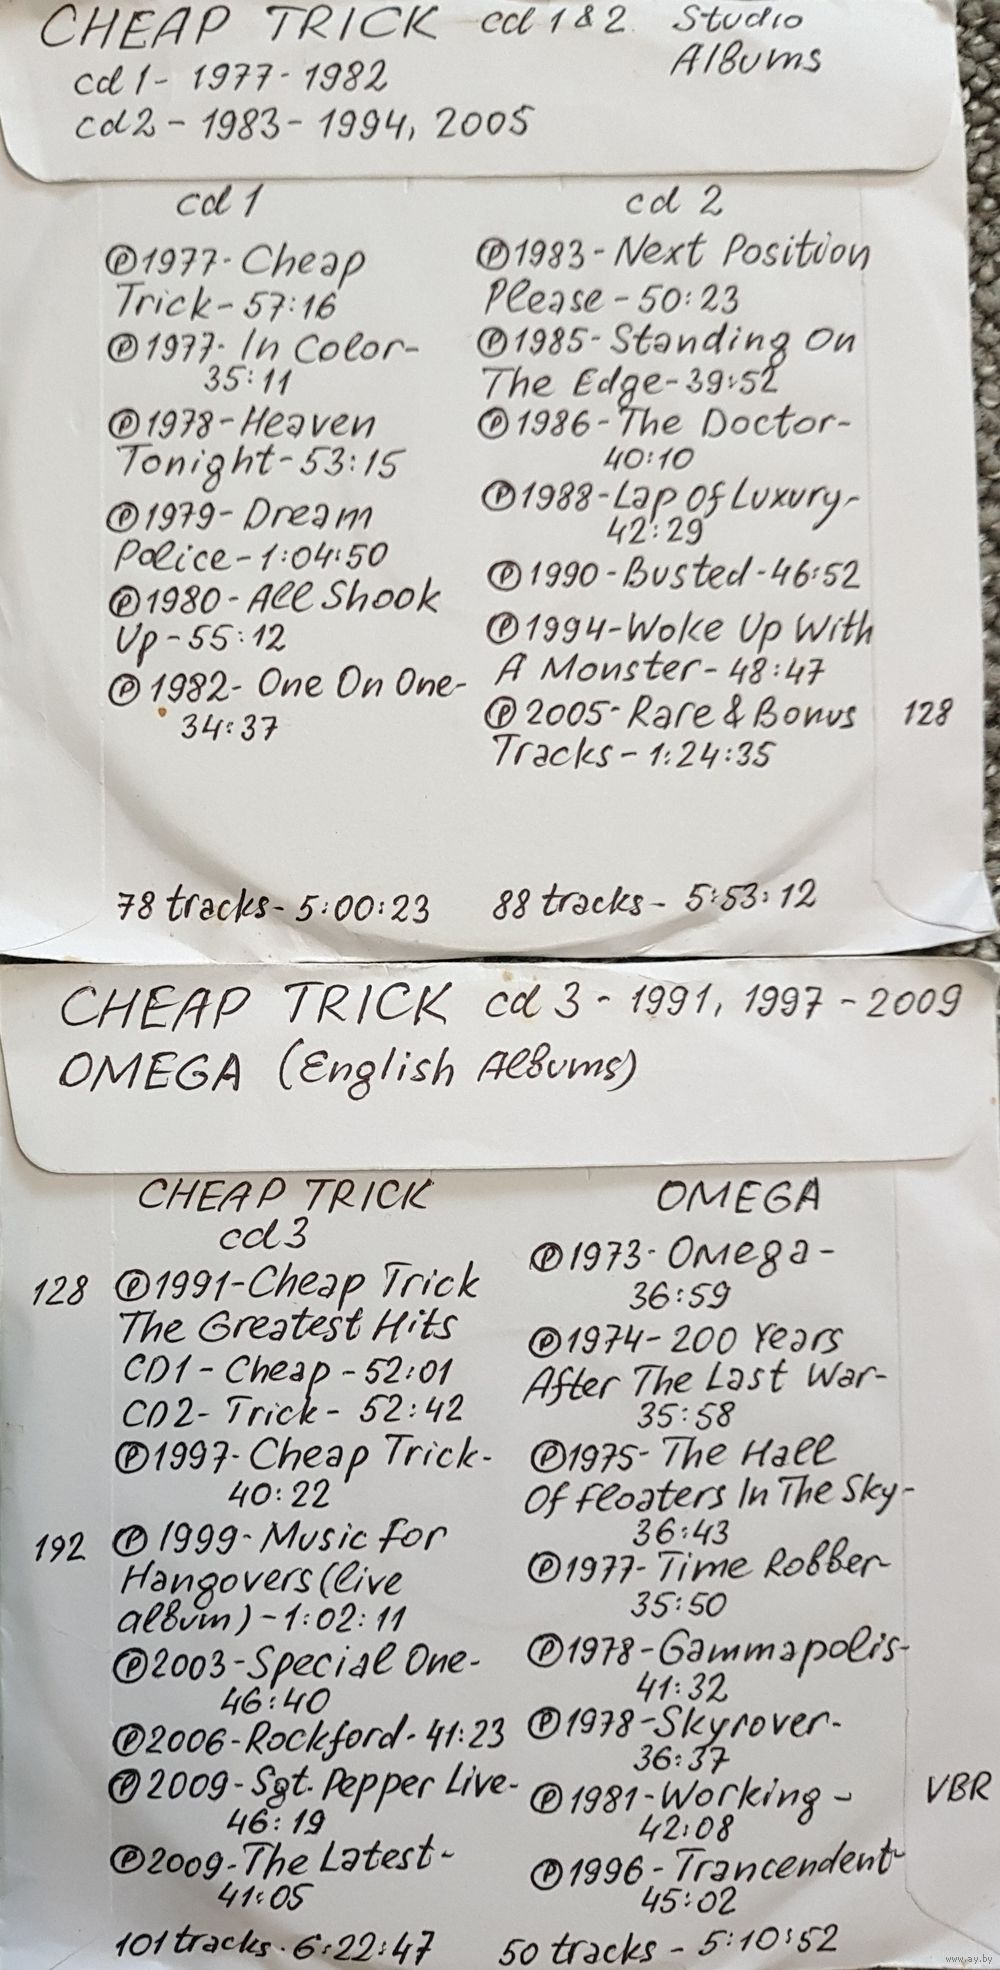 CHEAP TRICK cd 1 & 2 Studio
Albums
cd 1 - 1977 - 1982
cd 2 - 1983 - 1994, 2005
cd 1
Ⓟ1977 - Cheap
Trick - 57:16
Ⓟ1977 - In Color -
35:11
Ⓟ1978 - Heaven
Tonight - 53:15
Ⓟ1979 - Dream
Police - 1:04:50
Ⓟ1980 - All Shook
Up - 55:12
Ⓟ1982 - One On One -
34:37
78 tracks - 5:00:23
cd 2
Ⓟ1983 - Next Position
Please - 50:23
Ⓟ1985 - Standing On
The Edge - 39:52
Ⓟ1986 - The Doctor -
40:10
Ⓟ1988 - Lap Of Luxury -
42:29
Ⓟ1990 - Busted - 46:52
Ⓟ1994 - Woke Up With
A Monster - 48:47
Ⓟ2005 - Rare & Bonus 128
Tracks - 1:24:35
88 tracks - 5:53:12
CHEAP TRICK cd 3 - 1991, 1997 - 2009
OMEGA (English Albums)
CHEAP TRICK
cd 3
128 Ⓟ1991 - Cheap Trick
The Greatest Hits
CD1 - Cheap - 52:01
CD2 - Trick - 52:42
Ⓟ1997 - Cheap Trick -
40:22
192 Ⓟ1999 - Music for
Hangovers (live
album) - 1:02:11
Ⓟ2003 - Special One -
46:40
Ⓟ2006 - Rockford - 41:23
Ⓟ2009 - Sgt. Pepper Live -
46:19
Ⓟ2009 - The Latest -
41:05
101 tracks - 6:22:47
OMEGA
Ⓟ1973 - Omega -
36:59
Ⓟ1974 - 200 Years
After The Last War -
35:58
Ⓟ1975 - The Hall
Of Floaters In The Sky -
36:43
Ⓟ1977 - Time Robber -
35:50
Ⓟ1978 - Gammapolis -
41:32
Ⓟ1978 - Skyrover -
36:37
Ⓟ1981 - Working - VBR
42:08
Ⓟ1996 - Trancendent -
45:02
50 tracks - 5:10:52
www.ay.by